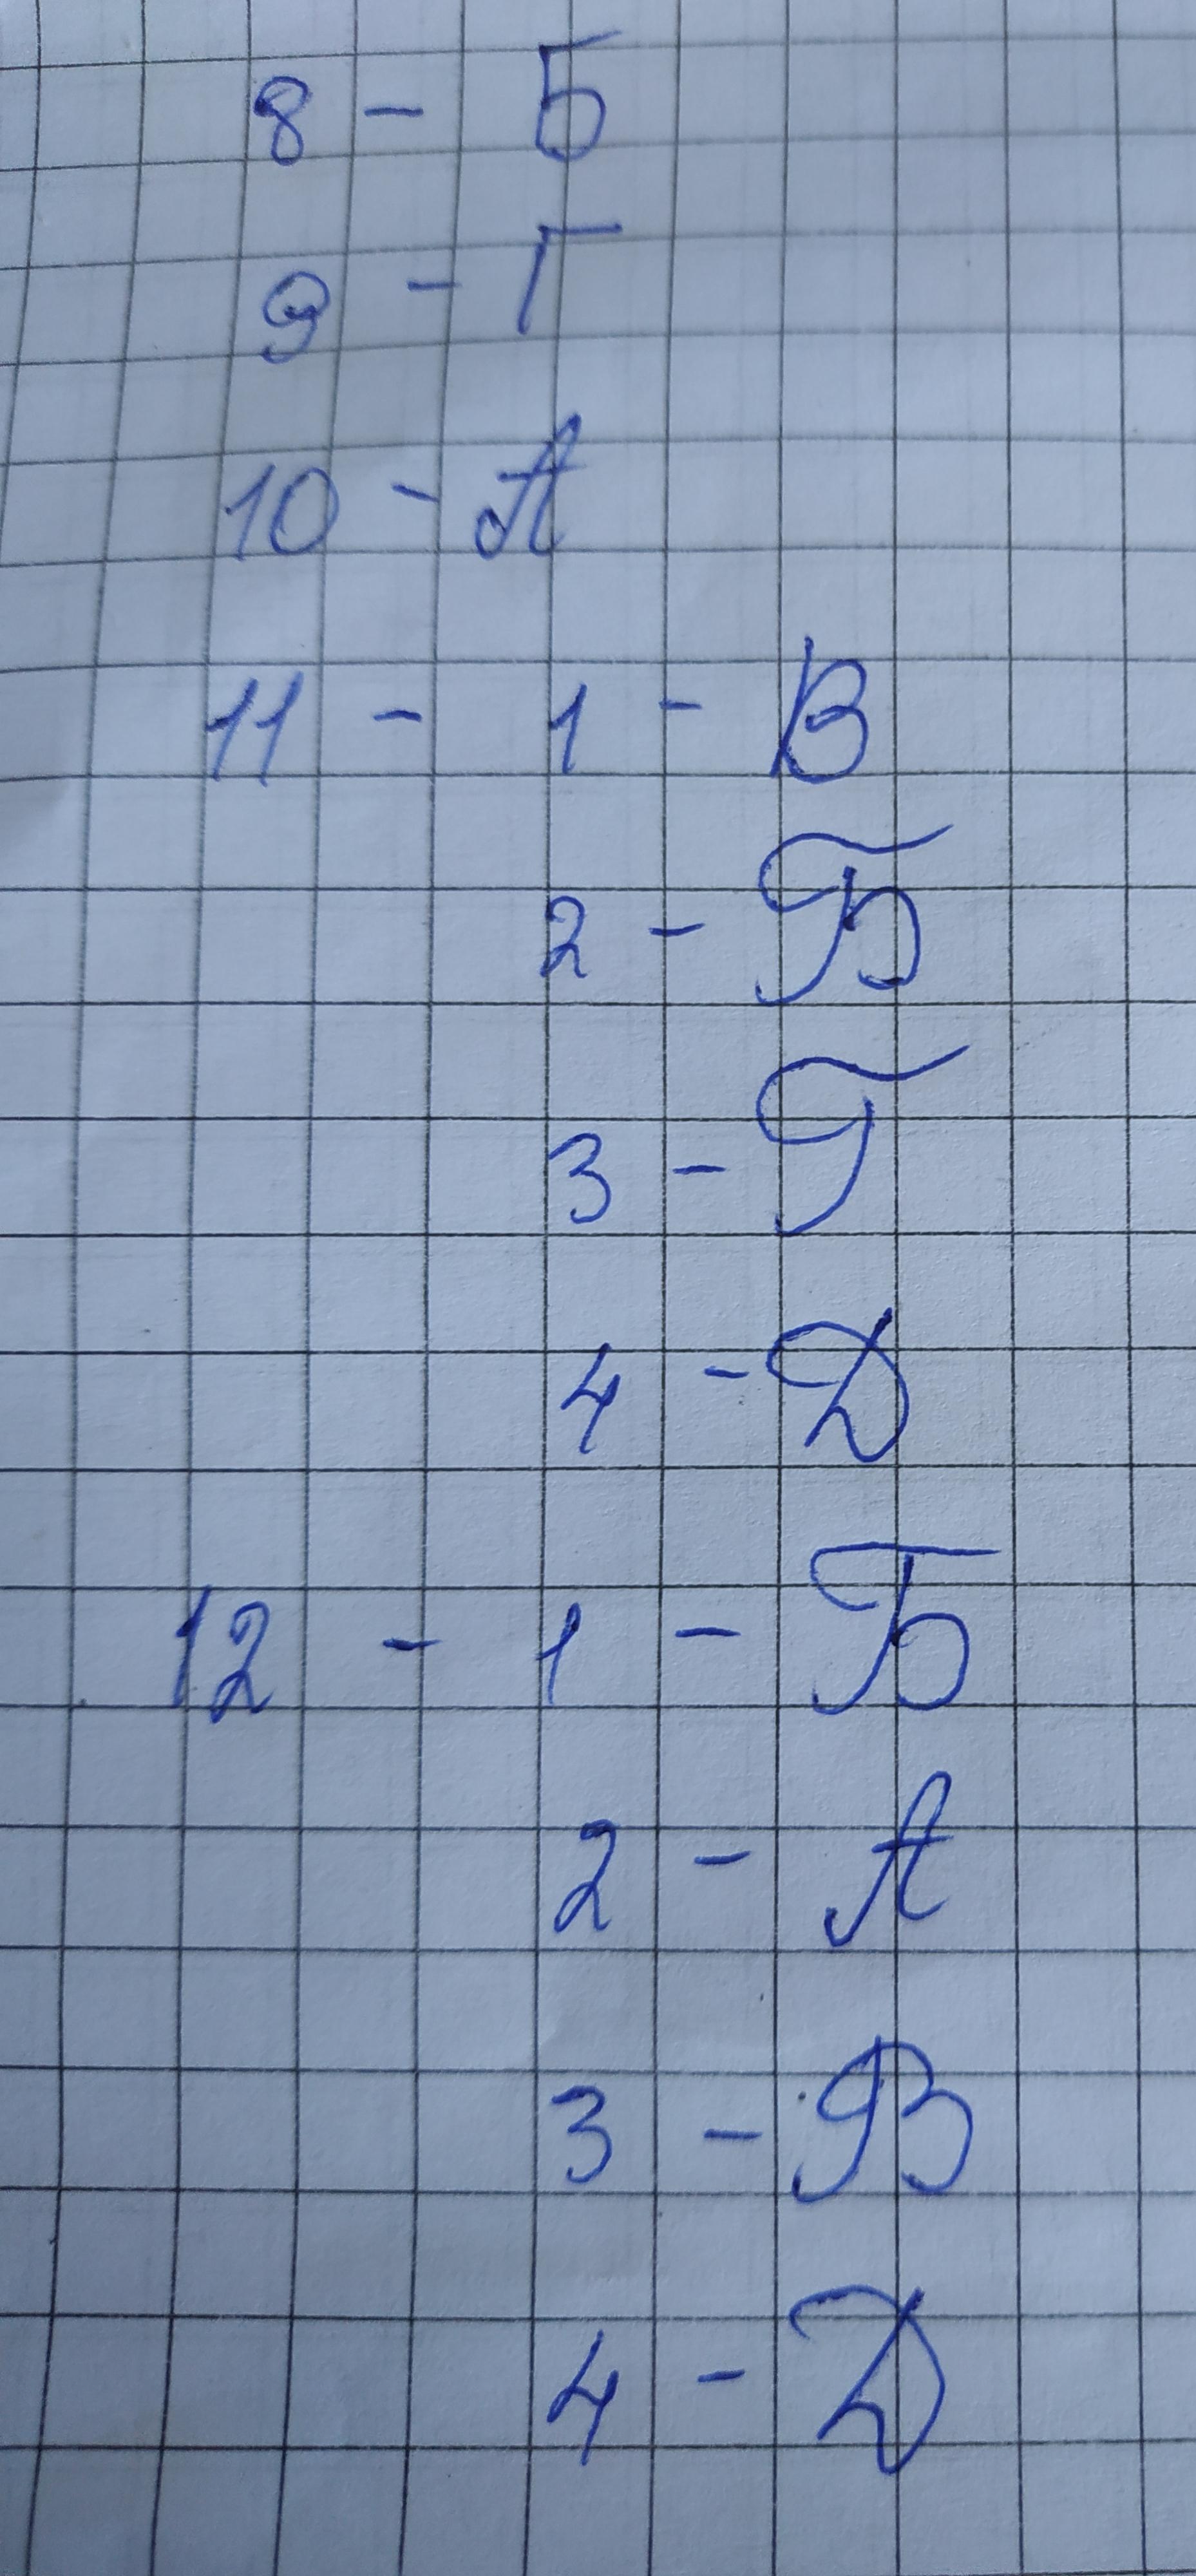 8 - Б
9 - Г
10 - А
11 - 1 - В
2 - Б
3 - Г
4 - Д
12 - 1 - Б
2 - А
3 - В
4 - Д